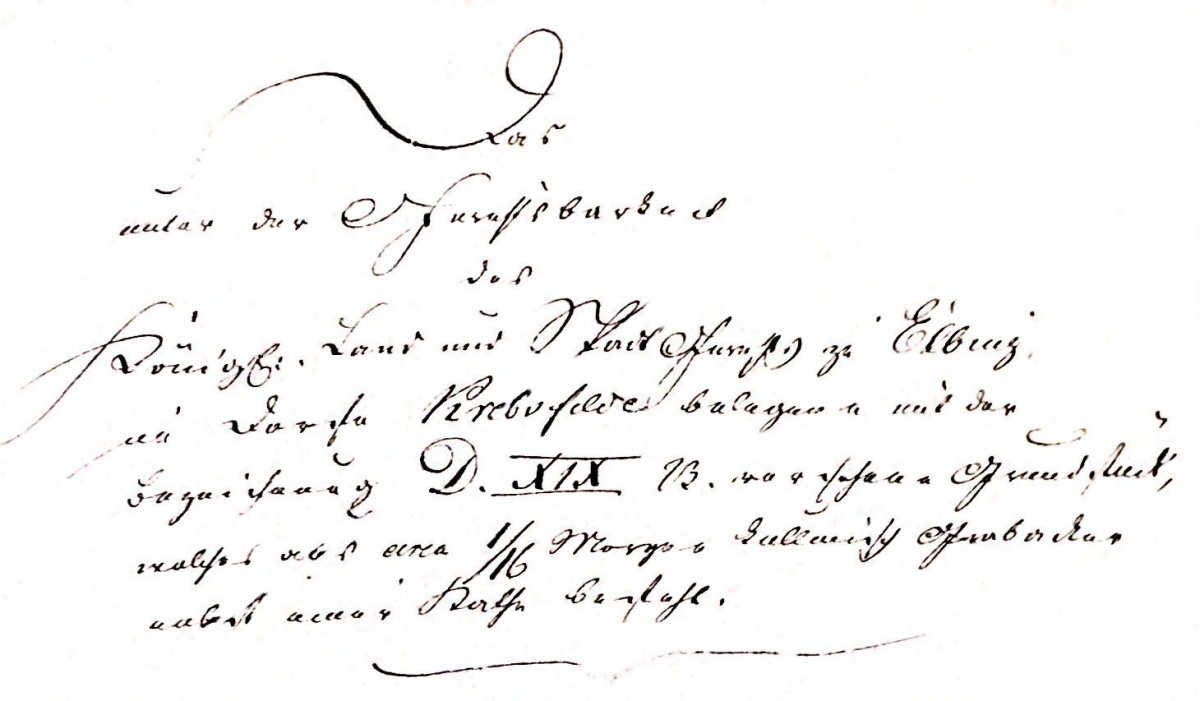 Das
unter der Gerichtsbarkeit
des
Königl. Land und Stadt Gerichts zu Elbing,
im Dorfe Krebsfelde belegene mit der
Bezeichnung D. XIX B. versehene Grundstück,
welches aus circa 1/16 Morgen kullmisch
nebst einer Kathe besteht.